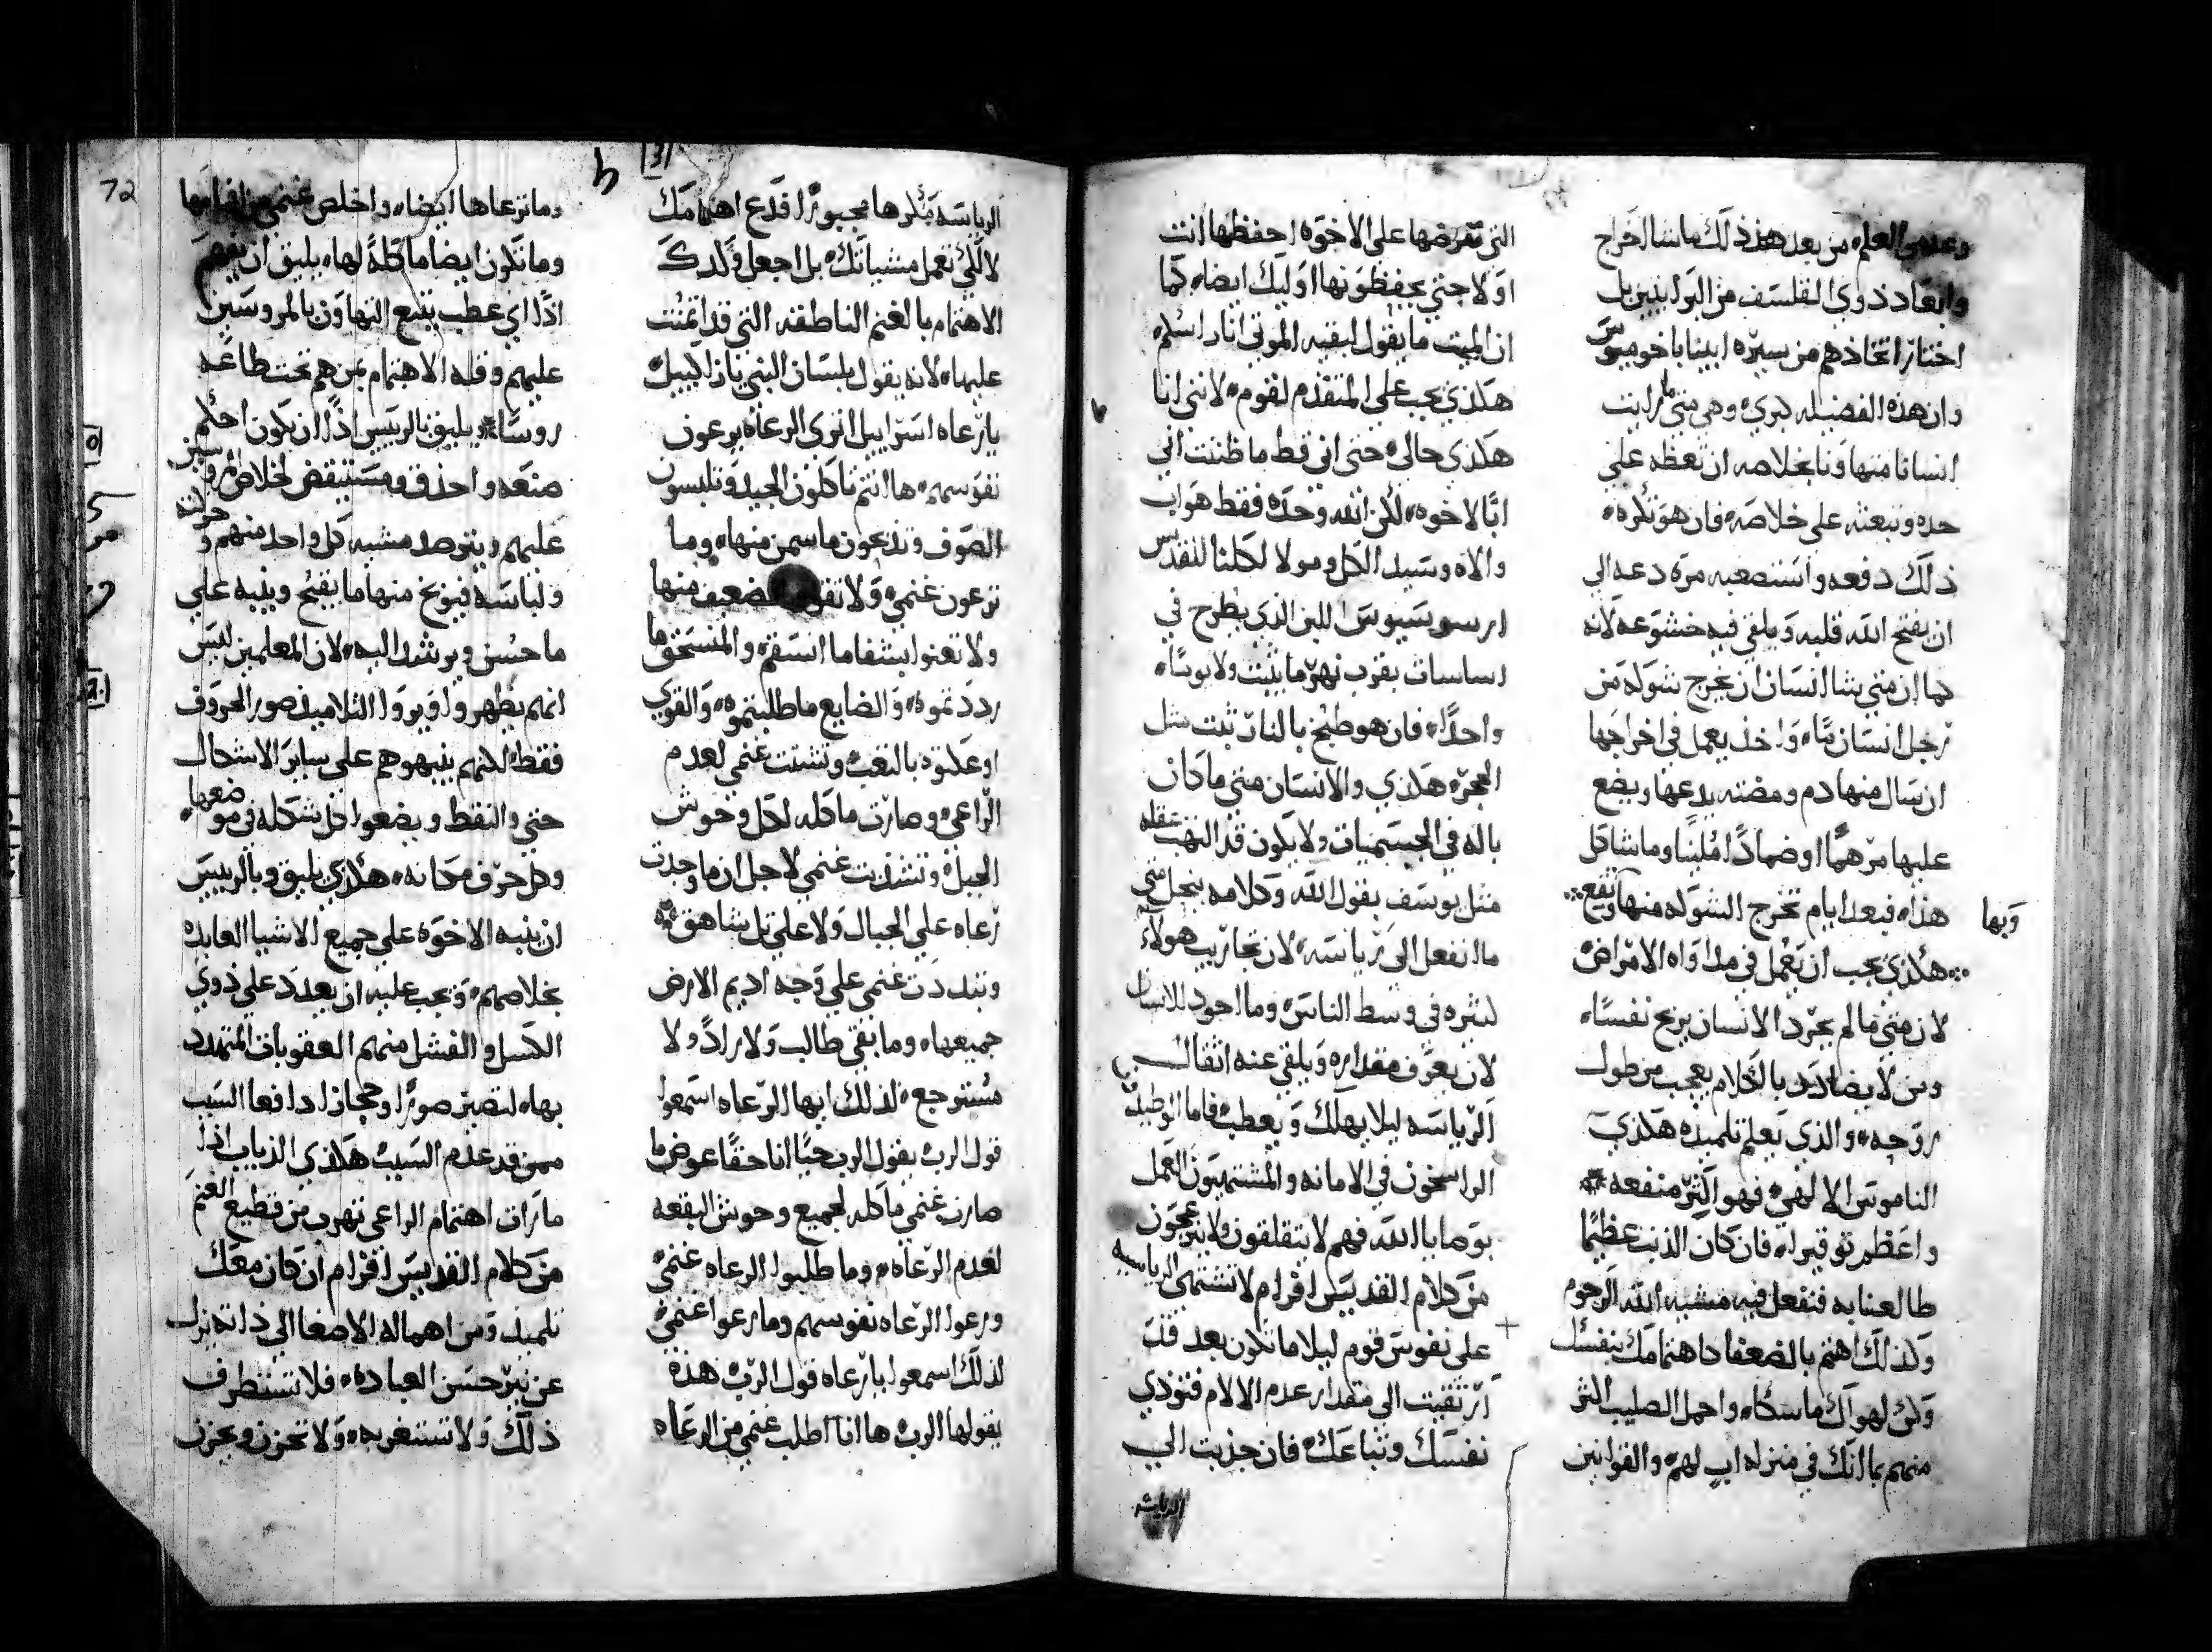 وعدموا العلم من بعد هذ ذلك ماشا اخراج
وابعاد ذوي الفلسف من البرانيين بل
اختار اتخاذهم من سيرة ابينا باخوميوس
وان هذه الفضيله كبري وهي متي ما رايت
انسانا متهاونا بخلاصه ان تعظه علي
حده وتبعثه علي خلاصه فان هو تكره
ذلك دفعه واستصعبه مره دعه الي
ان يفتح الله قلبه ويلقي فيه خشوعه لانه
كما ان متي شا انسان ان يخرج شوكه من
رجل انسان ما، واخذ يعمل في اخراجها
ان سال منها دم ومضته يدعها ويضع
عليها مرهما او ضمادا ملينا وما شاكل
هذا فبعد ايام تخرج الشوكه منها
وبها
هكذي يجب ان تعمل في مداواه الامراض
لان متي ما لم يجرد الانسان يربح نفسا،
ومن لا يضادد بالكلام يعجب من طول
روحه والذي يعلم تلميذه هكذي
الناموس الالهي فهو اكثر منفعه
واعظم توقيرا فان كان الذنب عظيما
طالعنا به فنفعل فيه مشيه الله الرحوم
وكذلك اهتم بالضعفا كاهتمامك بنفسك
وكن لهولك ماسكا، واحمل الصليب اكثر
منهم بما انك في منزله اب لهم والقوانين
التي تفرضها علي الاخوه احفظها انت
اولا حتي يحفظونها اوليك ايضا كما
ان الميت ما يقول لبقيه الموتي انا راسكم
هكذي يجب علي المتقدم لقوم لانني انا
هكذي حالي حتي اني قط ما ظننت اني
ابا لاخوه لكن الله وحده فقط هو اب
والاه وسيد الكل ومولا لكلنا للقديس
ارسوسيوس اللبن الذي يطرح في
اساسات بقرب نهر ما يثبت ولا يوما
واحدا فان هو طبخ بالنار ثبت مثل
الحجر هكذي والانسان متي ما كان
باله في الجسميات ولا يكون قد التهب عقله
مثل يوسف بقول الله وكلامه ينحل متي
ما انفعل الي رياسه لان تجاريب هولاء
كثيره في وسط الناس وما اجود للانسان
لان يعرف مقداره ويلقي عنه اثقال
الرياسه ليلا يهلك ويعطب فاما الوطيدون
الراسخون في الامانه والمشتهيون العمل
بوصايا الله فهم لا يتقلقون ولا ينزعجون
من كلام القديس افرام لا تشتهي الرياسه
علي نفوس قوم ليلا ما تكون بعد قد
ارتقيت الي مقدار عدم الالام فتوذي
نفسك وتباعك فان جذبت الي
الرياسه
الرياسه مكرها مجبورا فدع اهتمامك
لا لكي تعمل مشياتك بل اجعل وكدك
الاهتمام بالغنم الناطقه التي قد اتمنت
عليها لانه يقول بلسان النبي يازاكييل
يا رعاه اسراييل اتري الرعاه يرعون
نفوسهم ها انتم تاكلون الجيد وتلبسون
الصوف وتذبحون ما سمن منها وما
ترعون غنمي ولا تقوا الضعيف منها
ولا تعنوا بشفا ما استقم والمنسحق ما
رددتموه والضايع ما طلبتموه والقوي
اوعكتوه بالتعب وتشتت غنمي لعدم
الراعي وصارت ماكله لكل وحوش
الجبل وتشذبت غنمي لاجل ان ما وجدت
رعاه علي الجبال ولا علي تل شاهق
وتبددت غنمي علي وجه اديم الارض
جميعها وما بقي طالب ولا راد ولا
مسترجع لذلك ايها الرعاه اسمعوا
قول الرب يقول الرب حيا انا حقا عوض ما
صارت غنمي ماكله لجميع وحوش البقعه
لعدم الرعاه وما طلبوا الرعاه غنمي
ورعوا الرعاه نفوسهم وما رعوا غنمي
لذلك اسمعوا يا رعاه قول الرب هذه
يقولها الرب ها انا اطلب غنمي من الرعاه
72
وما ترعاها ايضا واخلص غنمي من افمامها
وما تكون ايضا ماكله لها، يليق ان يفهم
اذا اي عطب يتبع التهاون بالمروسين
عليهم وقله الاهتمام بمن هم تحت طاعه
روسا، ويليق بالرييس اذا ان يكون احكم
صنعه واحذق ومستيقض لخلاص المروسين
عليهم ويترصد مشيه كل واحد منهم وحركته
ولباسه فيوبخ منها ما يقبح وينبه علي
ما حسن ويرشد اليه لان المعلمين ليس
انهم يظهروا ويروا التلاميذ صور الحروف
فقط لكنهم ينبهوهم علي ساير الاشكال
حتي والنقط ويضعوا كل شكله في موضعها
وكل حرف مكانه هكذي يليق وبالرييس
ان ينبه الاخوه علي جميع الاشيا العايده
بخلاصهم ويجب عليه ان يعدد علي ذوي
الكسل والفشل منهم العقوبات المتهدد
بها، لتصير صورا ومجازا دافعا السبب
ممن قد عدم السبب هكذي الذياب اذا
ما رات اهتمام الراعي تهرب من قطيع الغنم
من كلام القديس افرام ان كان معك
تلميذ ومن اهماله الاصغا الي ذاته نزل
عن نير حسن العباده فلا تستطرف
ذلك ولا تستغربه ولا تحزن ويحزن